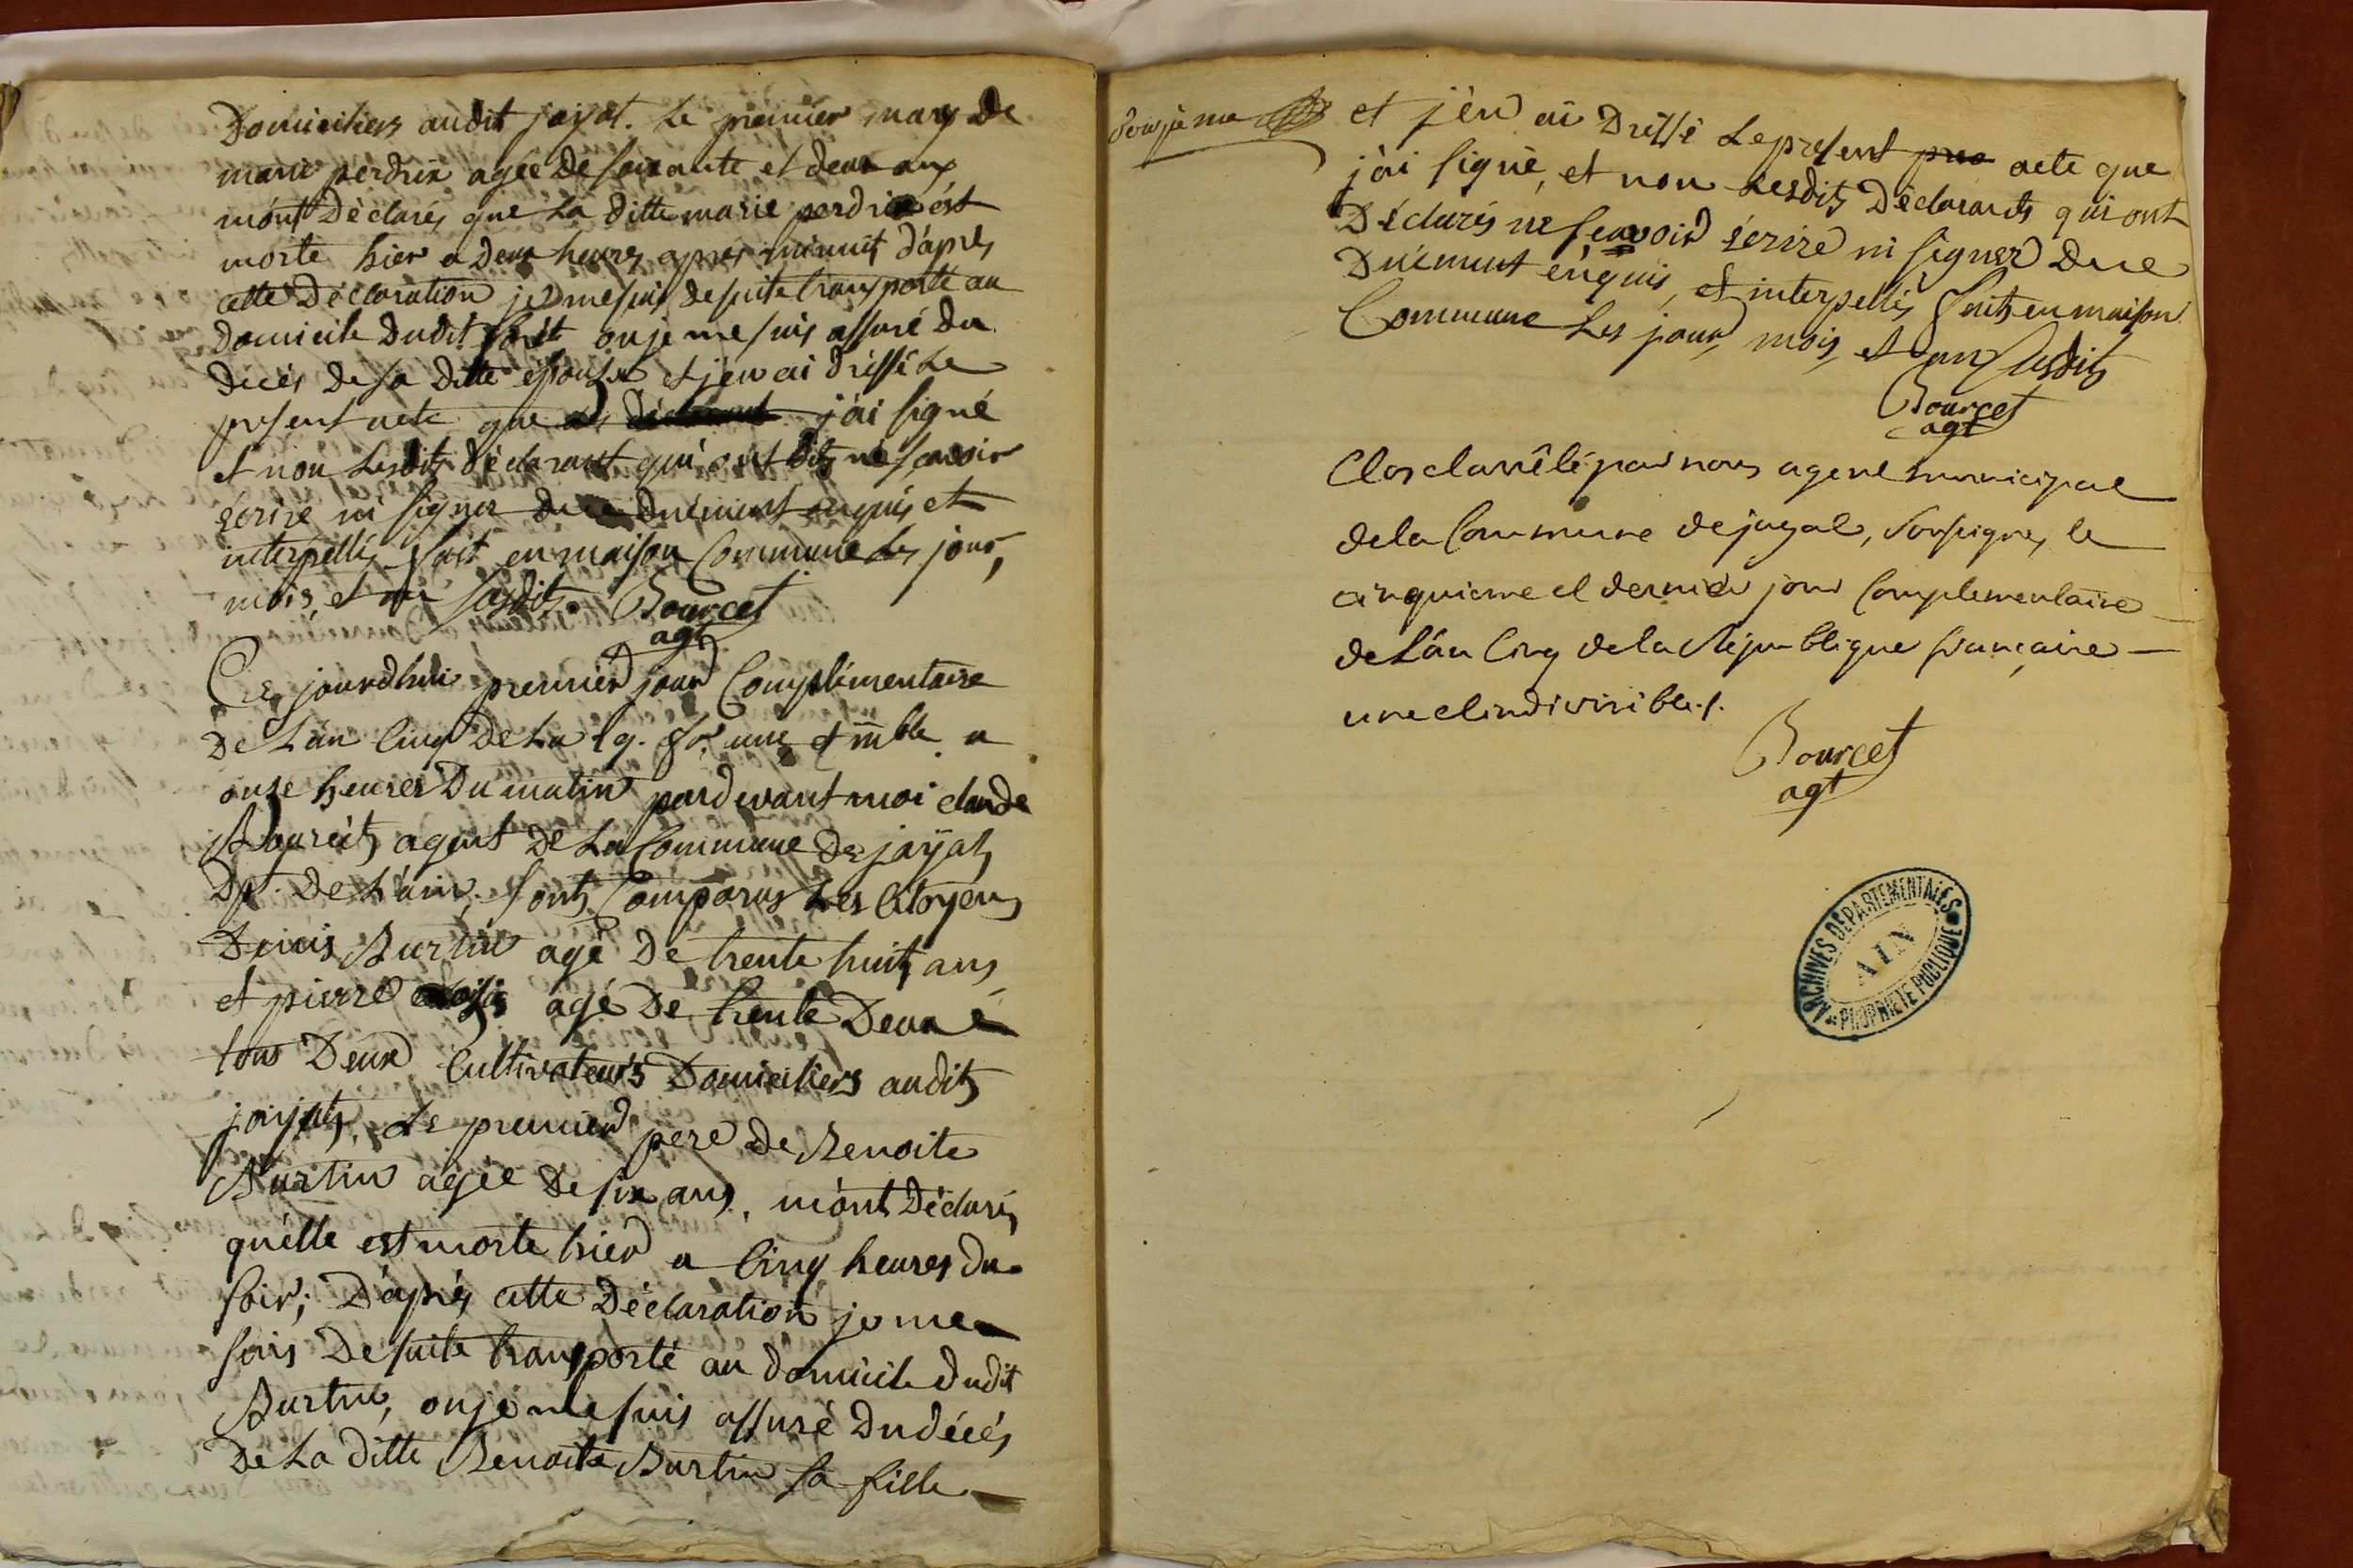 Domiciliers audit jayat. Le premier mary de
marie perdrix agée de soixante et deux ans
mont Déclarés que La ditte marie perdrix est
morte hier a deux heures apres minuit d'après
cette Déclaration je me suis de suite transporté au
domicile Dudit ou je me suis assuré du
décés de sa ditte épouse et j'en ai dressé Le
present acte que j'ai signé
et non Lesdits déclarant qui ont dits ne scavoir
écrire ni signer de ce duement enquis et
interpellés fait en maison Commune Les jour,
mois, et an susdits. Bourcet
agt
Ce jourdhui premier jour Complémentaire
De L'an Cinq De La rq. fr. une et ınble a
onze heures Du matin pardevant moi claude
Bourcet, agent De La Commune De jayat,
Dpt. De L'ain, sont Comparus Les Citoyens
Denis Burtin agé De trente huit ans,
et pierre agé De trente Deux
tous Deux Cultivateurs Domiciliers audit
jayat, Le premier pere De Benoite
Burtin agée De six ans, m'ont Déclarés
qu'elle est morte hier a Cinq heures du
soir; D'après cette Déclaration je me
suis De suite transporté au domicile dudit
Burtin, ou je me suis assuré Du décés
De La ditte Benoite Burtin sa fille
et j'en ai Dressé Le present pres acte que
j'ai signé, et non Lesdits Déclarants qui ont
Déclarés ne scavoir écrire ni signer De ce
Duement enquis, et interpellés fait en maison
Commune Les jour, mois, et an susdits
Bourcet
agt
Clos et arrêté par nous agent municipal
de la Commune de jayat, soussigné, le
cinquieme et dernier jour Complementaire
de L'an Cinq de la République francaise
une et indivisible./.
Bourcet
agt
ARCHIVES DÉPARTEMENTALES
AIN
PROPRIÉTÉ PUBLIQUE